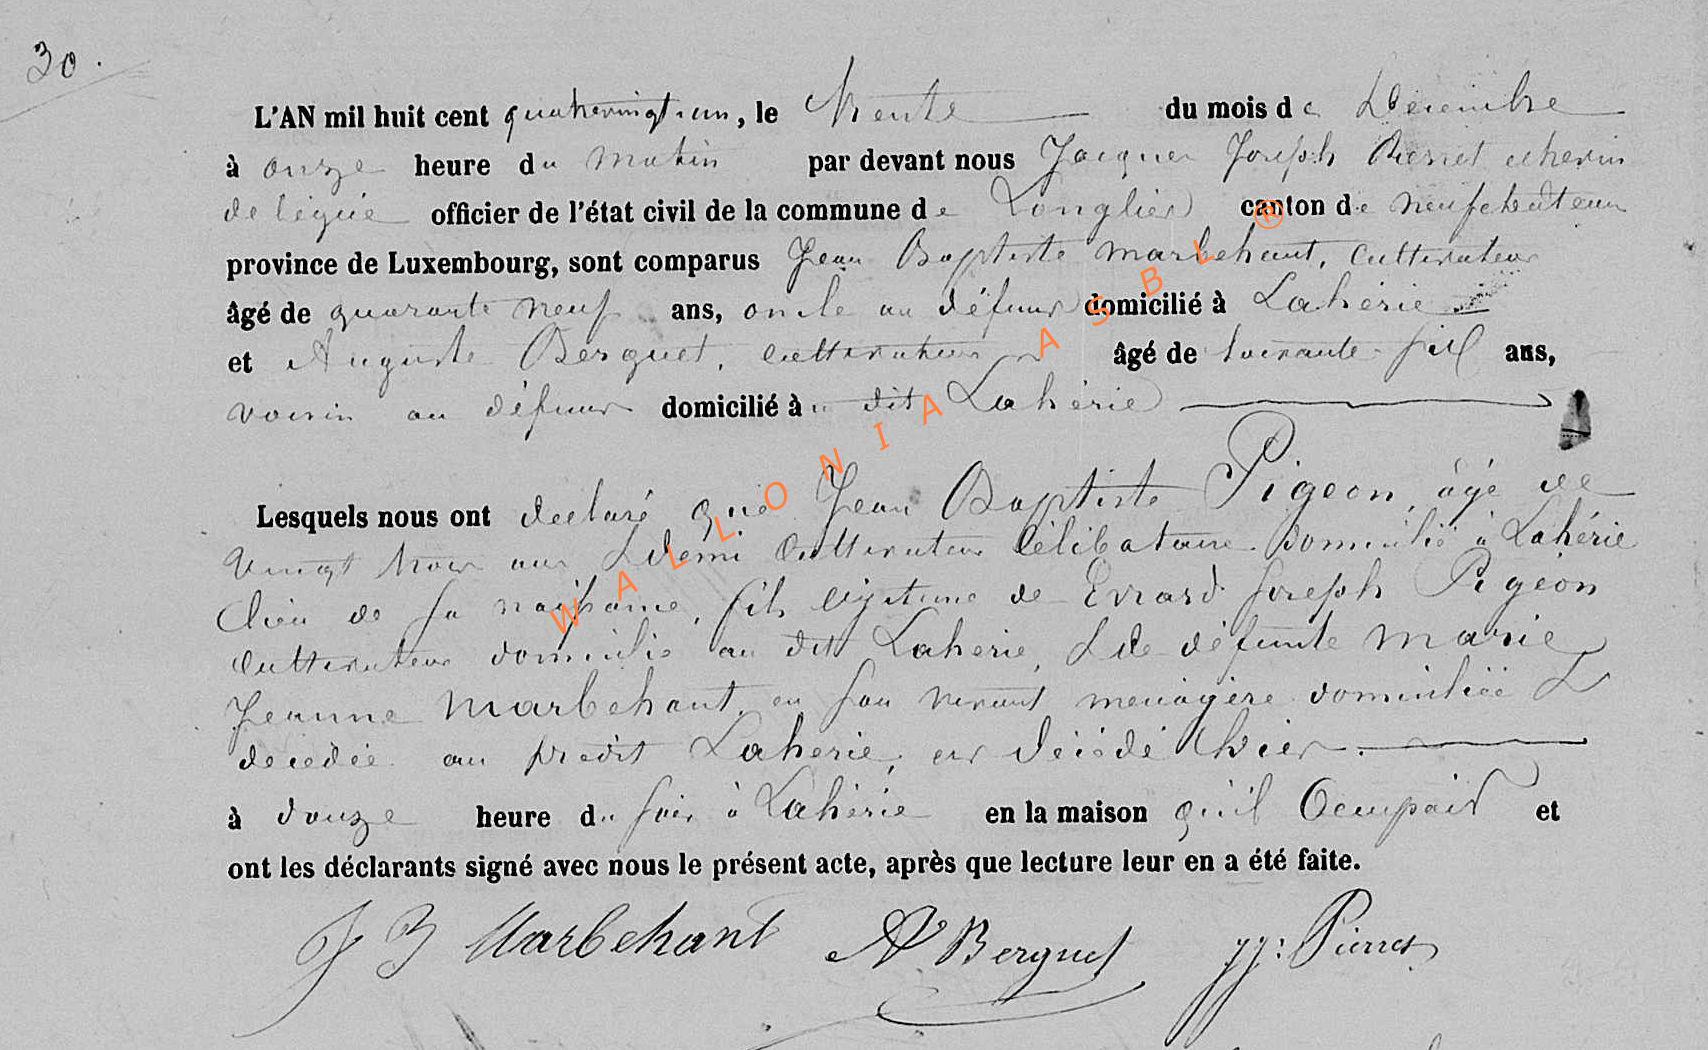 30.
L'AN mil huit cent quatrevingt-un, le trente du mois de Décembre
à onze heure du matin par devant nous Jacques Joseph Pierret échevin
délégué officier de l'état civil de la commune de Longlier canton de Neufchâteau
province de Luxembourg, sont comparus Jean Baptiste Marbehant, cultivateur
âgé de quarante neuf ans, oncle au défunt domicilié à Lahérie
et Auguste Berquet, cultivateur âgé de soixante ans,
voisin au défunt domicilié à u dit Lahérie
Lesquels nous ont declaré que Jean Baptiste Pigeon, âgé de
vingt trois ans & demi Cultivateur Célibataire domicilié à Lahérie
lieu de sa naissance, fils légitime de Evrard Joseph Pigeon
Cultivateur domicilié au dit Laherie, & de défunte Marie
Jeanne Marbehant, en son vivant menagère domiciliée &
decedée au predit Laherie, est décédé hier
à douze heure du soir à Lahérie en la maison qu'il Occupait et
ont les déclarants signé avec nous le présent acte, après que lecture leur en a été faite.
J B Marbehant A Berquet JJ: Pierret
WALLONIA ASBL ®